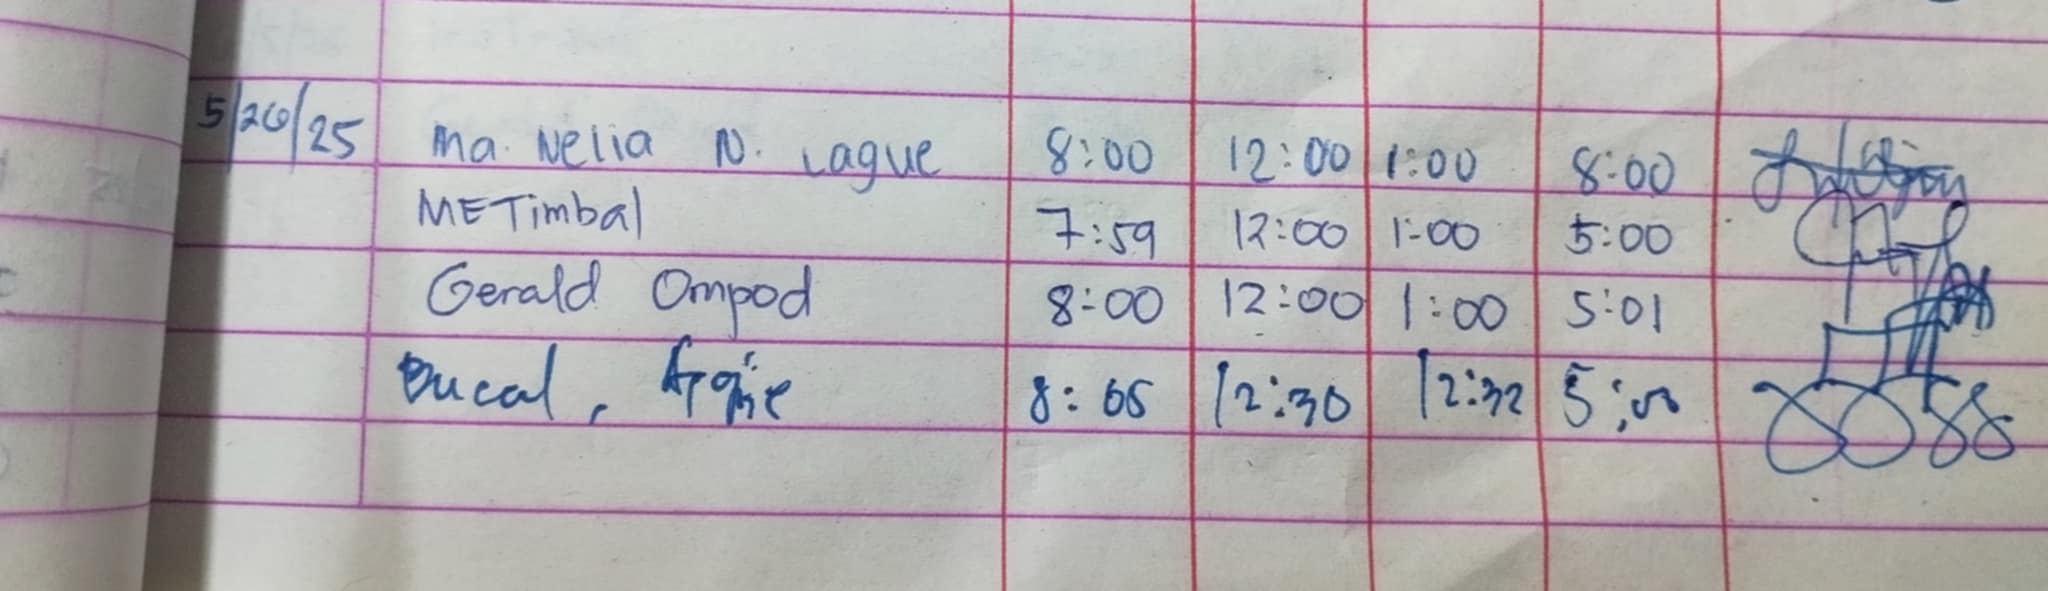 5/26/25 Ma. Nelia N. Lague 8:00 12:00 1:00 8:00
METimbal 7:59 12:00 1:00 5:00
Gerald Ompod 8:00 12:00 1:00 5:01
Ducal, 8:05 12:30 12:32